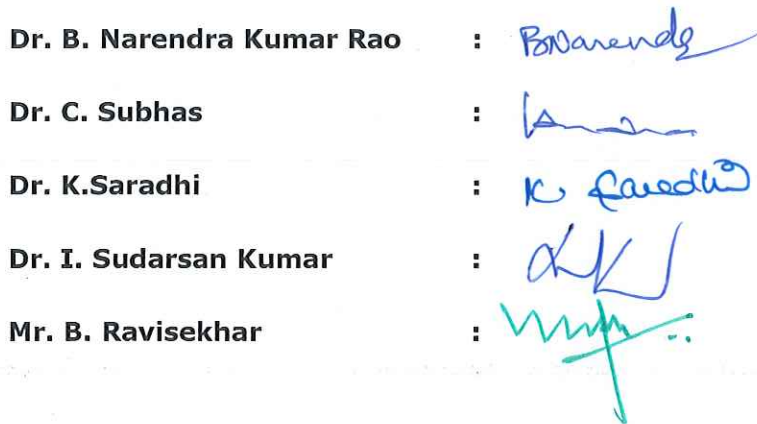 Dr. B. Narendra Kumar Rao : BNarendra
Dr. C. Subhas :
Dr. K.Saradhi : K Saradhi
Dr. I. Sudarsan Kumar :
Mr. B. Ravisekhar :